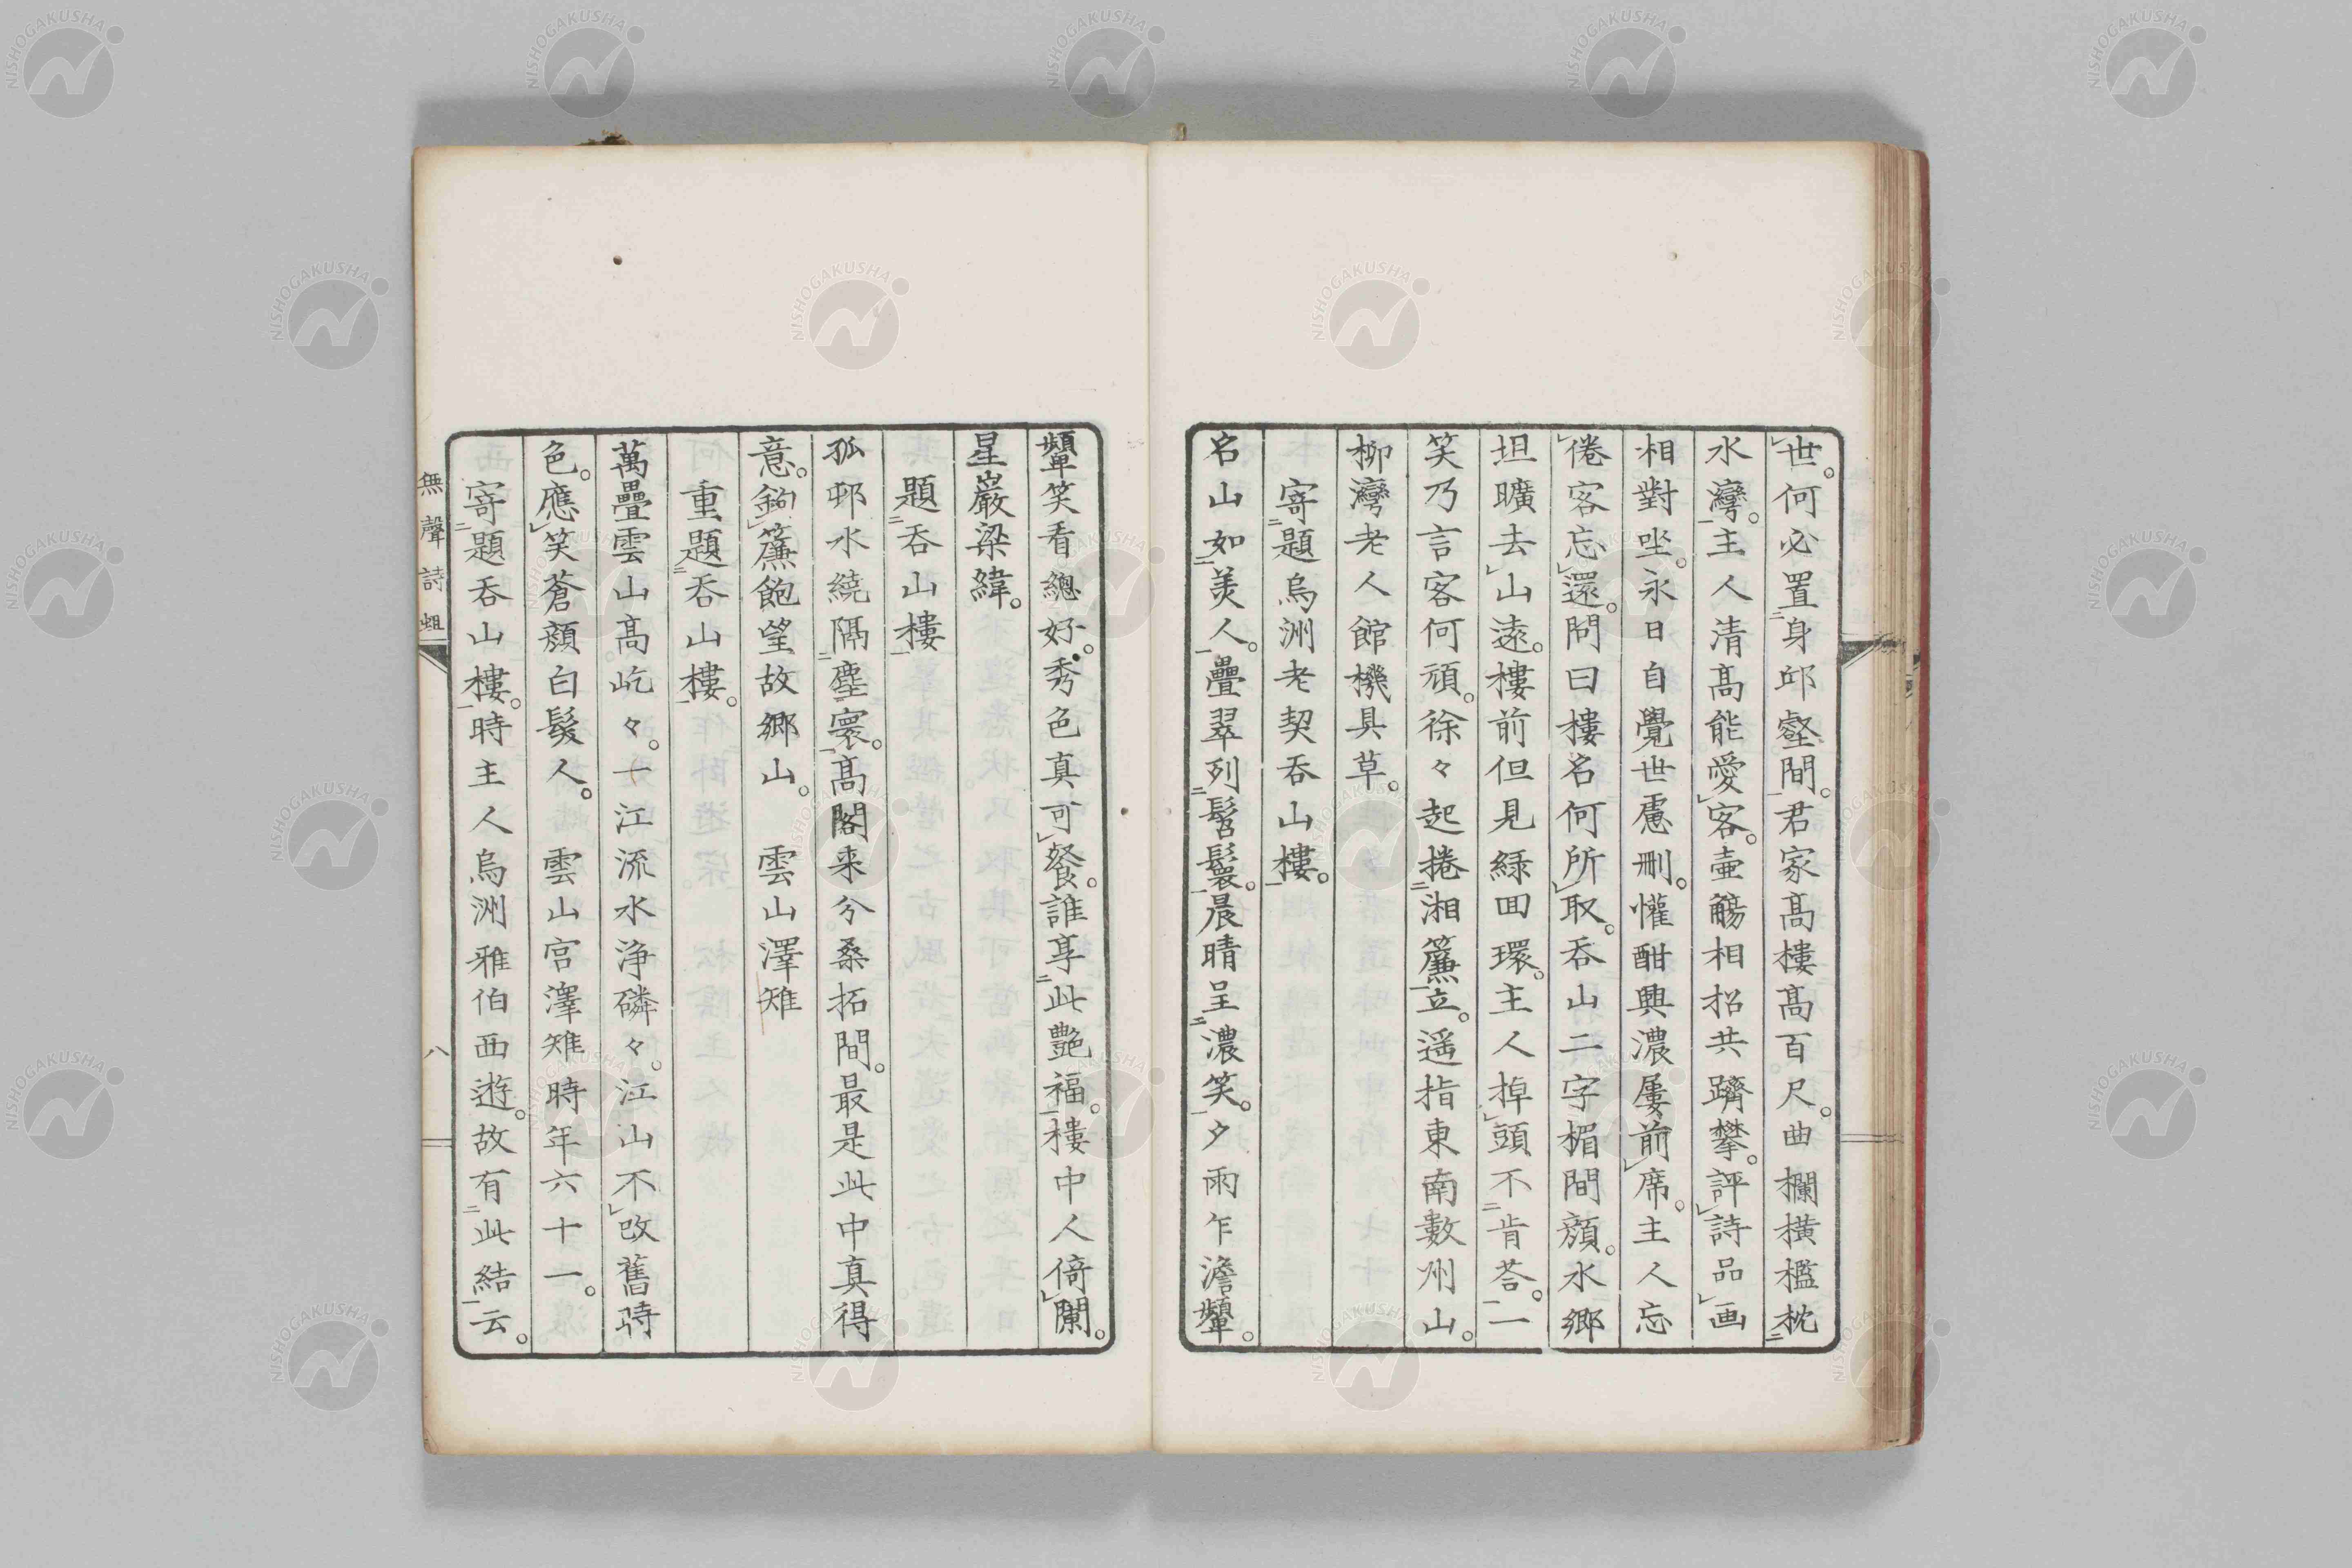 世。何必置身邱壑間。君家髙樓髙百尺。曲欄横檻枕
水灣。主人清髙能愛客。壷觴相招共躋攀。評詩品画
相對坐。永日自覺世慮刪。懽酣興濃屢前席。主人忘
倦客忘還。問曰樓名何所取。吞山二字楣間顔。水郷
坦曠去山遠。樓前但見緑囬環。主人掉頭不肯荅。一
笑乃言客何頑。徐々起捲湘簾立。遥指東南數州山。
柳灣老人館機具草。
寄題烏洲老契吞山樓。
名山如美人。疊翠列髻鬟。晨晴呈濃笑。夕雨乍澹顰。
顰笑看總好。秀色真可餐。誰享此艷福。樓中人倚闌。
星巖梁緯。
題吞山樓
孤邨水繞隔塵寰。髙閣来兮桑拓間。最是此中真得
意。鉤簾飽望故郷山。　雲山澤雉
重題吞山樓。
萬疊雲山髙屹々。一江流水浄磷々。江山不改舊時
色。應笑蒼顔白髮人。　雲山宮澤雉時年六十一。
寄題吞山樓。時主人烏洲雅伯西遊。故有此結云。
無聲詩俎
八
NISHOGAKUSHA